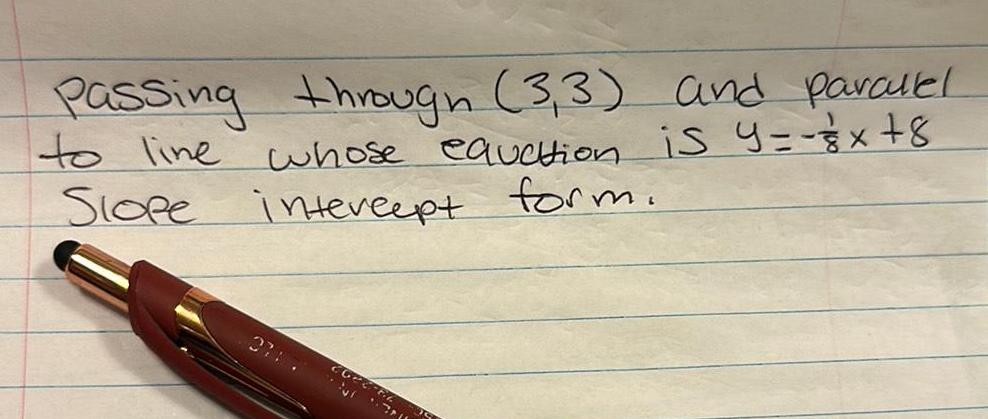 Passing through (3,3) and parallel
to line whose equation is y=-⅛x +8
Slope intercept form.